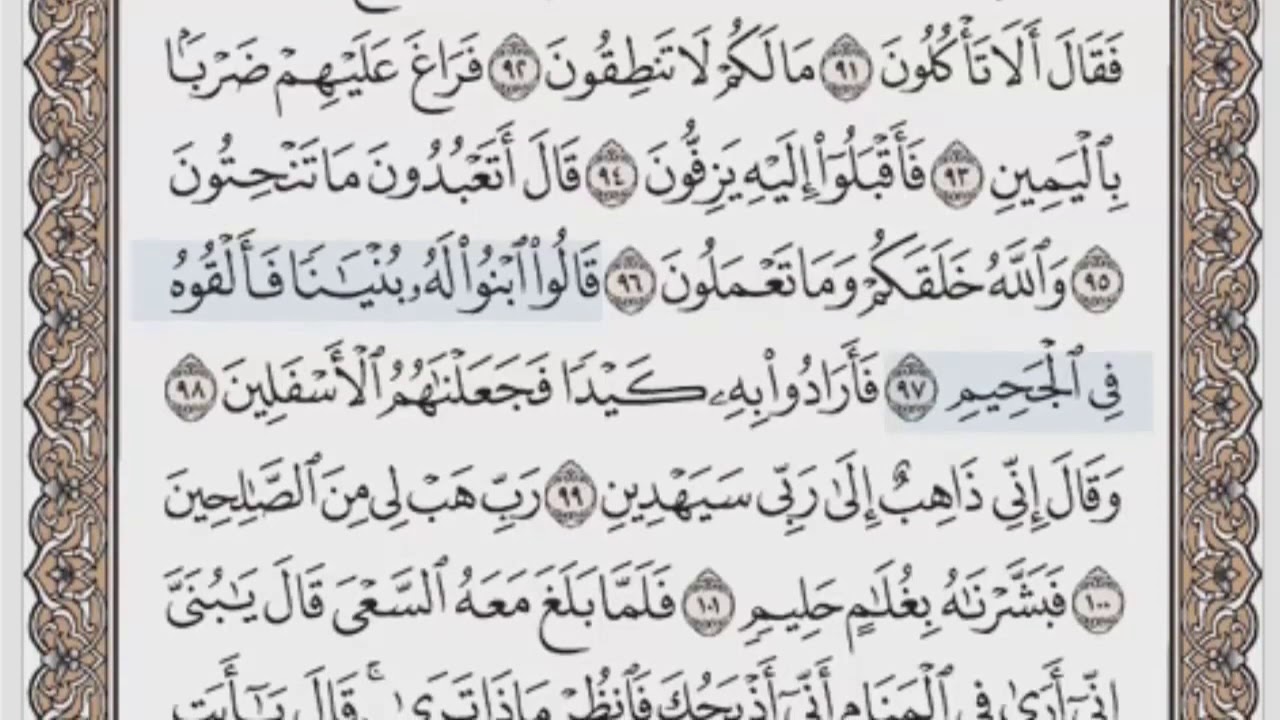 فَقَالَ أَلَا تَأْكُلُونَ ۝٩١ مَا لَكُمْ لَا تَنطِقُونَ ۝٩٢ فَرَاغَ عَلَيْهِمْ ضَرْبَۢا
بِٱلْيَمِينِ ۝٩٣ فَأَقْبَلُوٓا۟ إِلَيْهِ يَزِفُّونَ ۝٩٤ قَالَ أَتَعْبُدُونَ مَا تَنْحِتُونَ
۝٩٥ وَٱللَّهُ خَلَقَكُمْ وَمَا تَعْمَلُونَ ۝٩٦ قَالُوا۟ ٱبْنُوا۟ لَهُۥ بُنْيَـٰنًا فَأَلْقُوهُ
فِى ٱلْجَحِيمِ ۝٩٧ فَأَرَادُوا۟ بِهِۦ كَيْدًا فَجَعَلْنَـٰهُمُ ٱلْأَسْفَلِينَ ۝٩٨
وَقَالَ إِنِّى ذَاهِبٌ إِلَىٰ رَبِّى سَيَهْدِينِ ۝٩٩ رَبِّ هَبْ لِى مِنَ ٱلصَّـٰلِحِينَ
۝١٠٠ فَبَشَّرْنَـٰهُ بِغُلَـٰمٍ حَلِيمٍ ۝١٠١ فَلَمَّا بَلَغَ مَعَهُ ٱلسَّعْىَ قَالَ يَـٰبُنَىَّ
إِنِّىٓ أَرَىٰ فِى ٱلْمَنَامِ أَنِّىٓ أَذْبَحُكَ فَٱنظُرْ مَاذَا تَرَىٰ ۚ قَالَ يَـٰٓأَبَتِ